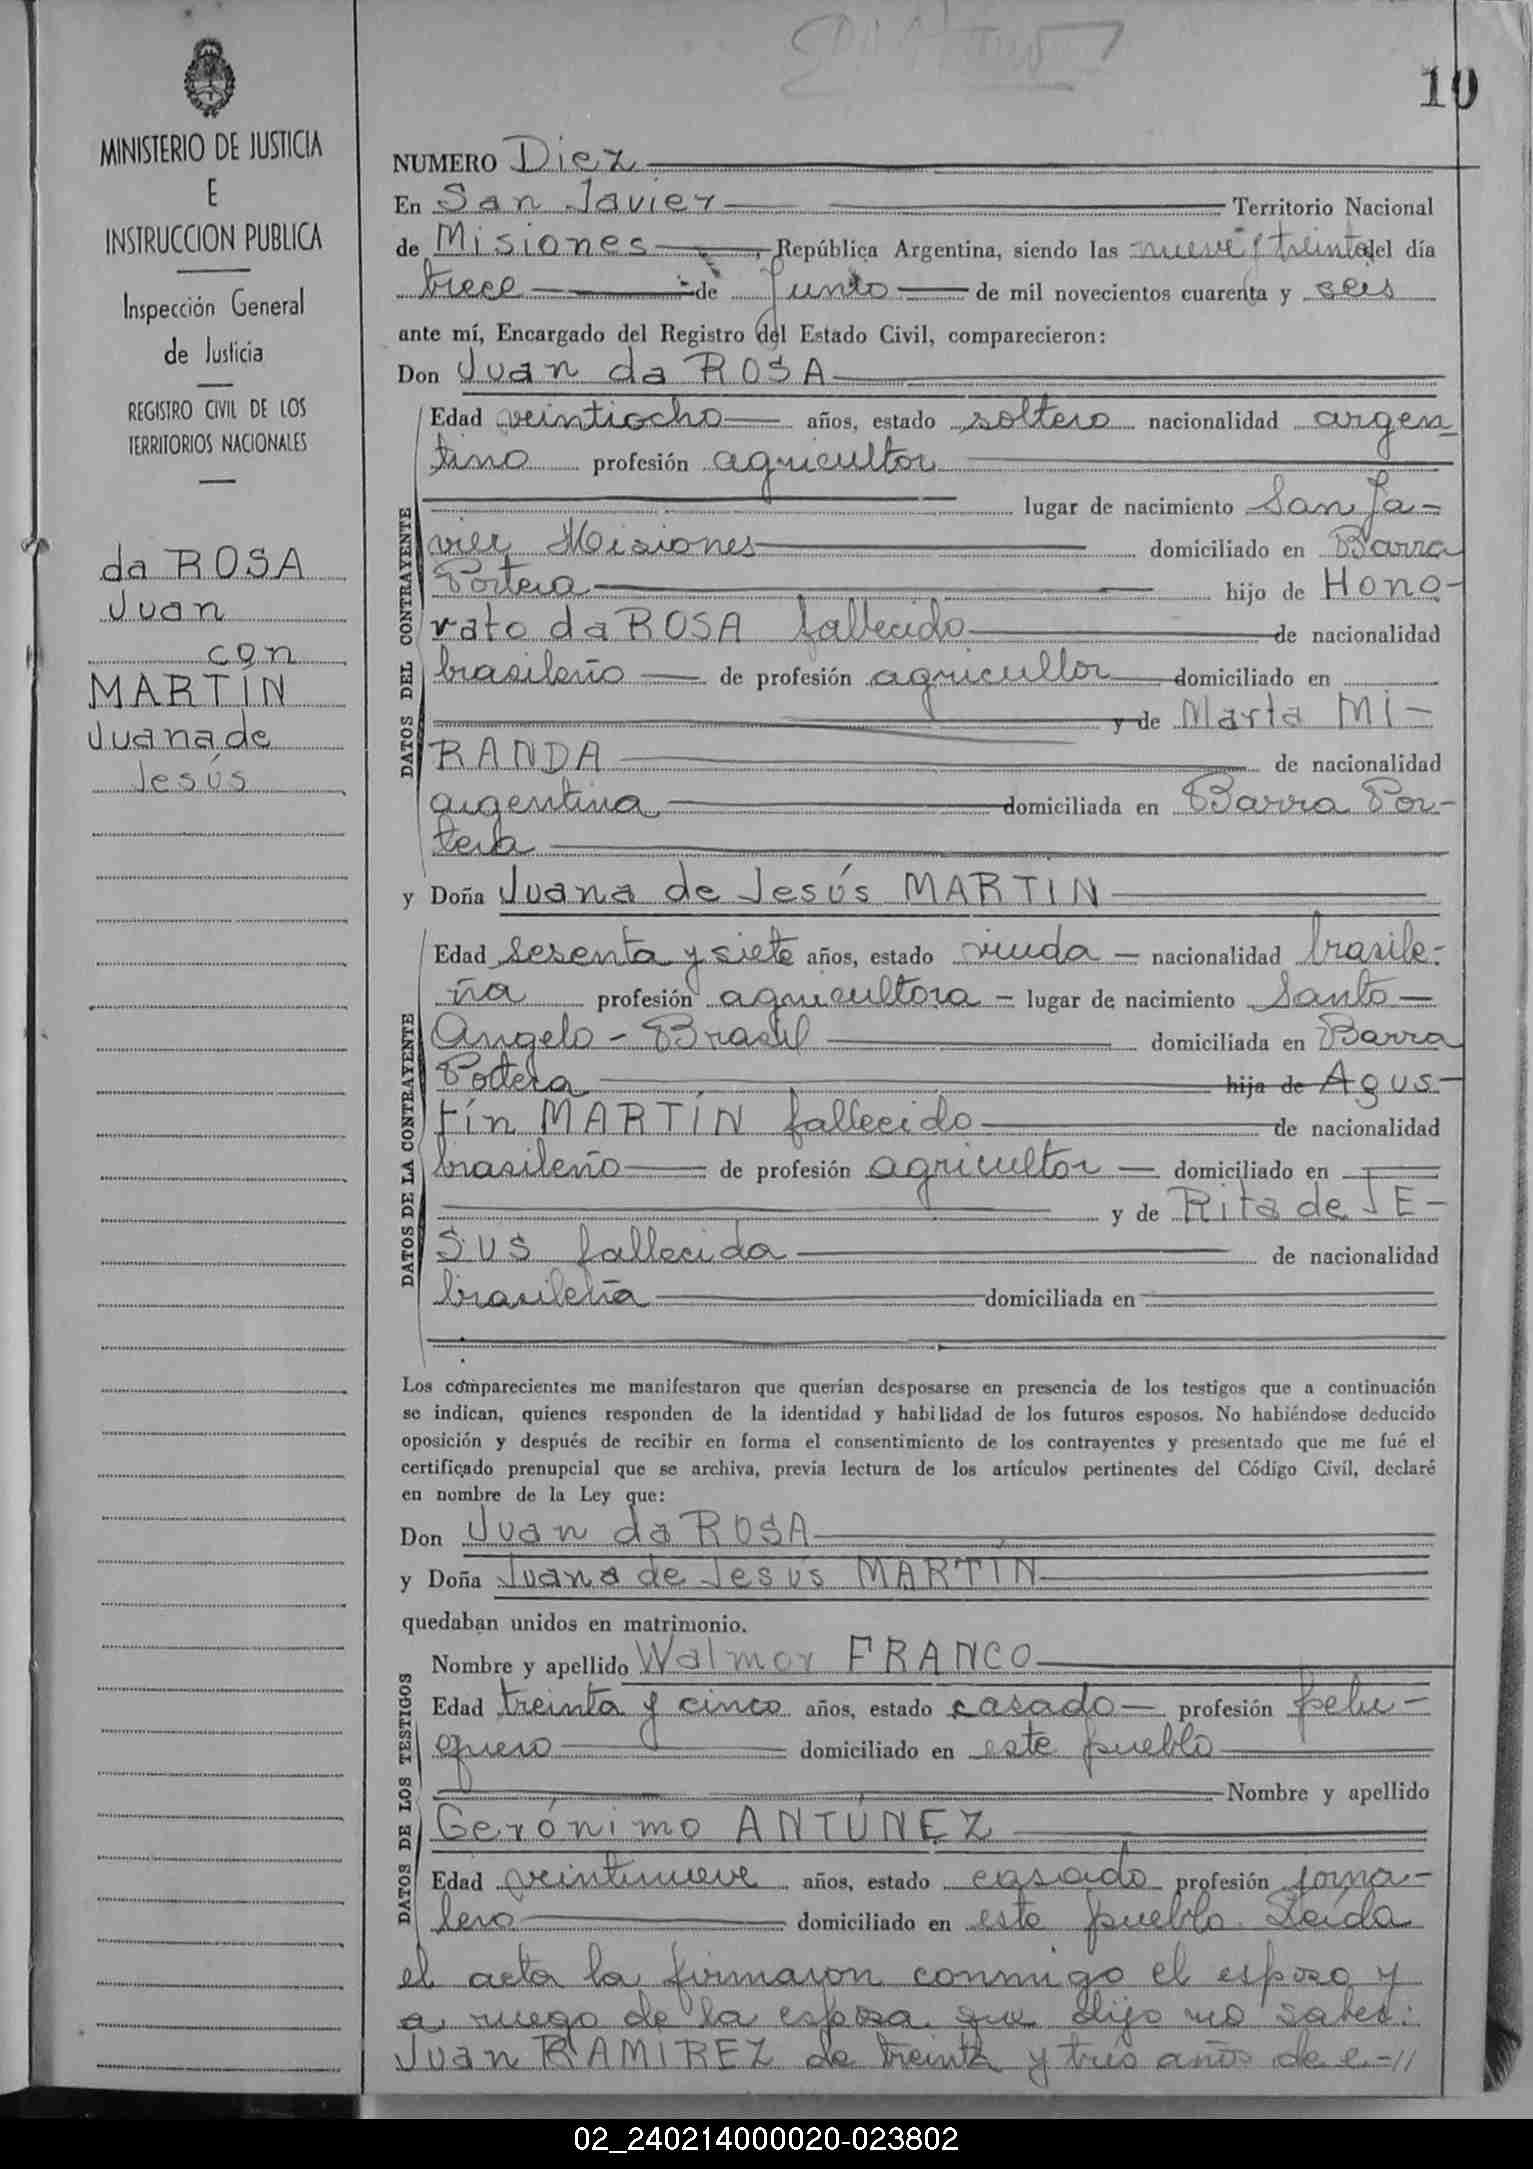 10
MINISTERIO DE JUSTICIA
E
INSTRUCCION PUBLICA
Inspección General
de Justicia
REGISTRO CIVIL DE LOS
TERRITORIOS NACIONALES
da ROSA
Juan
con
MARTÍN
Juana de
Jesús
NUMERO Diez
En San Javier Territorio Nacional
de Misiones, República Argentina, siendo las nueve y treinta del día
trece de Junio de mil novecientos cuarenta y seis
ante mí, Encargado del Registro del Estado Civil, comparecieron:
Don Juan da ROSA
DATOS DEL CONTRAYENTE
Edad veintiocho años, estado soltero nacionalidad argen-
tino profesión agricultor
lugar de nacimiento San Ja-
vier Misiones domiciliado en Barra
Portera hijo de Hono-
rato da ROSA fallecido de nacionalidad
brasileño de profesión agricultor domiciliado en
y de Marta MI-
RANDA de nacionalidad
argentina domiciliada en Barra Por-
tera
y Doña Juana de Jesús MARTIN
DATOS DE LA CONTRAYENTE
Edad sesenta y siete años, estado viuda nacionalidad brasile-
ña profesión agricultora - lugar de nacimiento Santo
Angelo - Brasil domiciliada en Barra
Portera hija de Agus-
tín MARTÍN fallecido de nacionalidad
brasileño de profesión agricultor domiciliado en
y de Rita de JE-
SUS fallecida de nacionalidad
brasileña domiciliada en
Los comparecientes me manifestaron que querían desposarse en presencia de los testigos que a continuación
se indican, quienes responden de la identidad y habilidad de los futuros esposos. No habiéndose deducido
oposición y después de recibir en forma el consentimiento de los contrayentes y presentado que me fué el
certificado prenupcial que se archiva, previa lectura de los artículos pertinentes del Código Civil, declaré
en nombre de la Ley que:
Don Juan da ROSA
y Doña Juana de Jesús MARTÍN
quedaban unidos en matrimonio.
DATOS DE LOS TESTIGOS
Nombre y apellido Walmor FRANCO
Edad treinta y cinco años, estado casado profesión pelu-
quero domiciliado en este pueblo
Nombre y apellido
Gerónimo ANTÚNEZ
Edad veintinueve años, estado casado profesión jorna-
lero domiciliado en este pueblo. Leída
el acta la firmaron conmigo el esposo y
a ruego de la esposa que dijo no saber:
Juan RAMIREZ de treinta y tres años de e-//
02_240214000020-023802